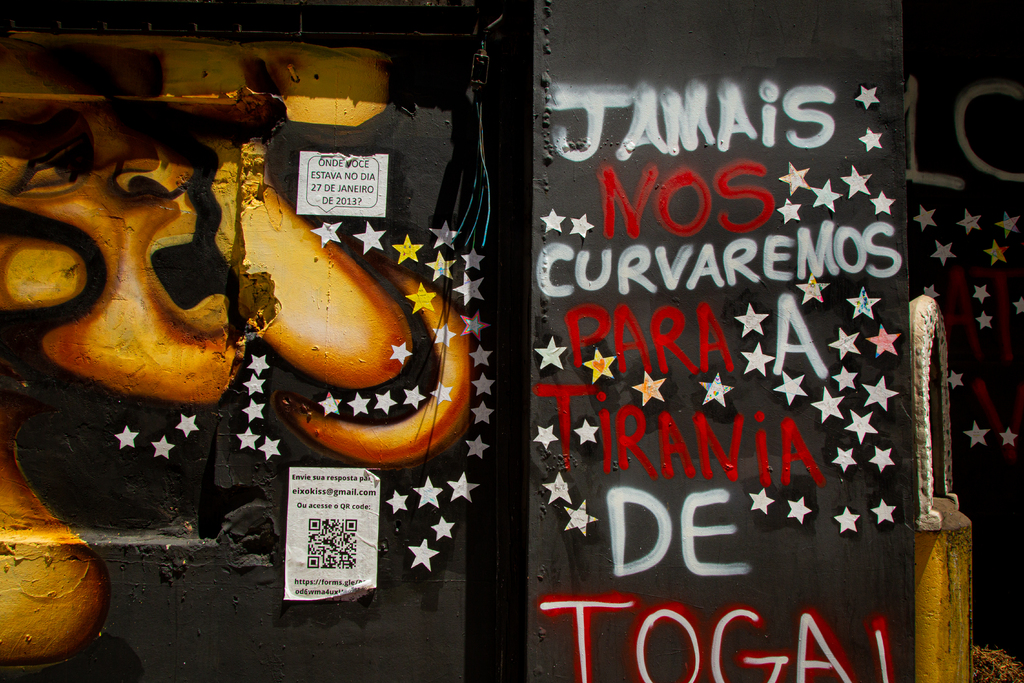 ONDE VOCÊ
ESTAVA NO DIA
27 DE JANEIRO
DE 2013?
Envie sua resposta par
eixokiss@gmail.com
Ou acesse o QR code:
https://forms.gle/
JAMAIS
NOS
CURVAREMOS
PARA A
TIRANIA
DE
TOGA!